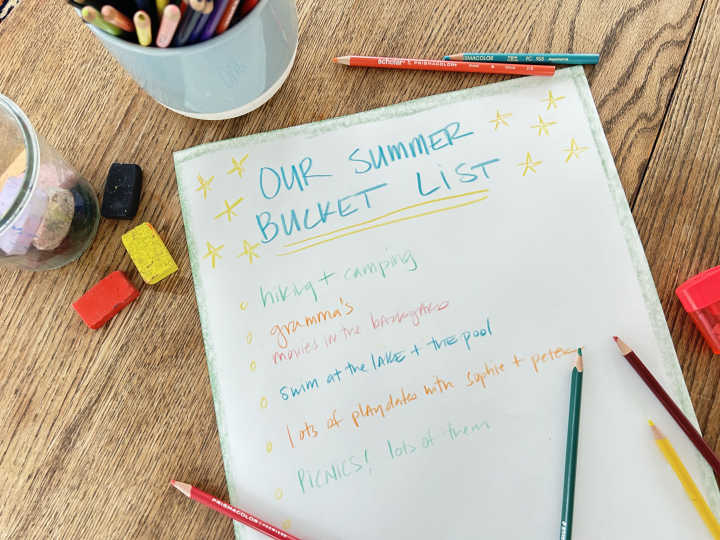 scholar PRISMACOLOR
OUR SUMMER
BUCKET LIST
hiking + camping
gramma's
movies in the backyard
swim at the LAKE + the POOL
lots of playdates with Sophie + peter
PICNICS! lots of them
PRISMACOLOR